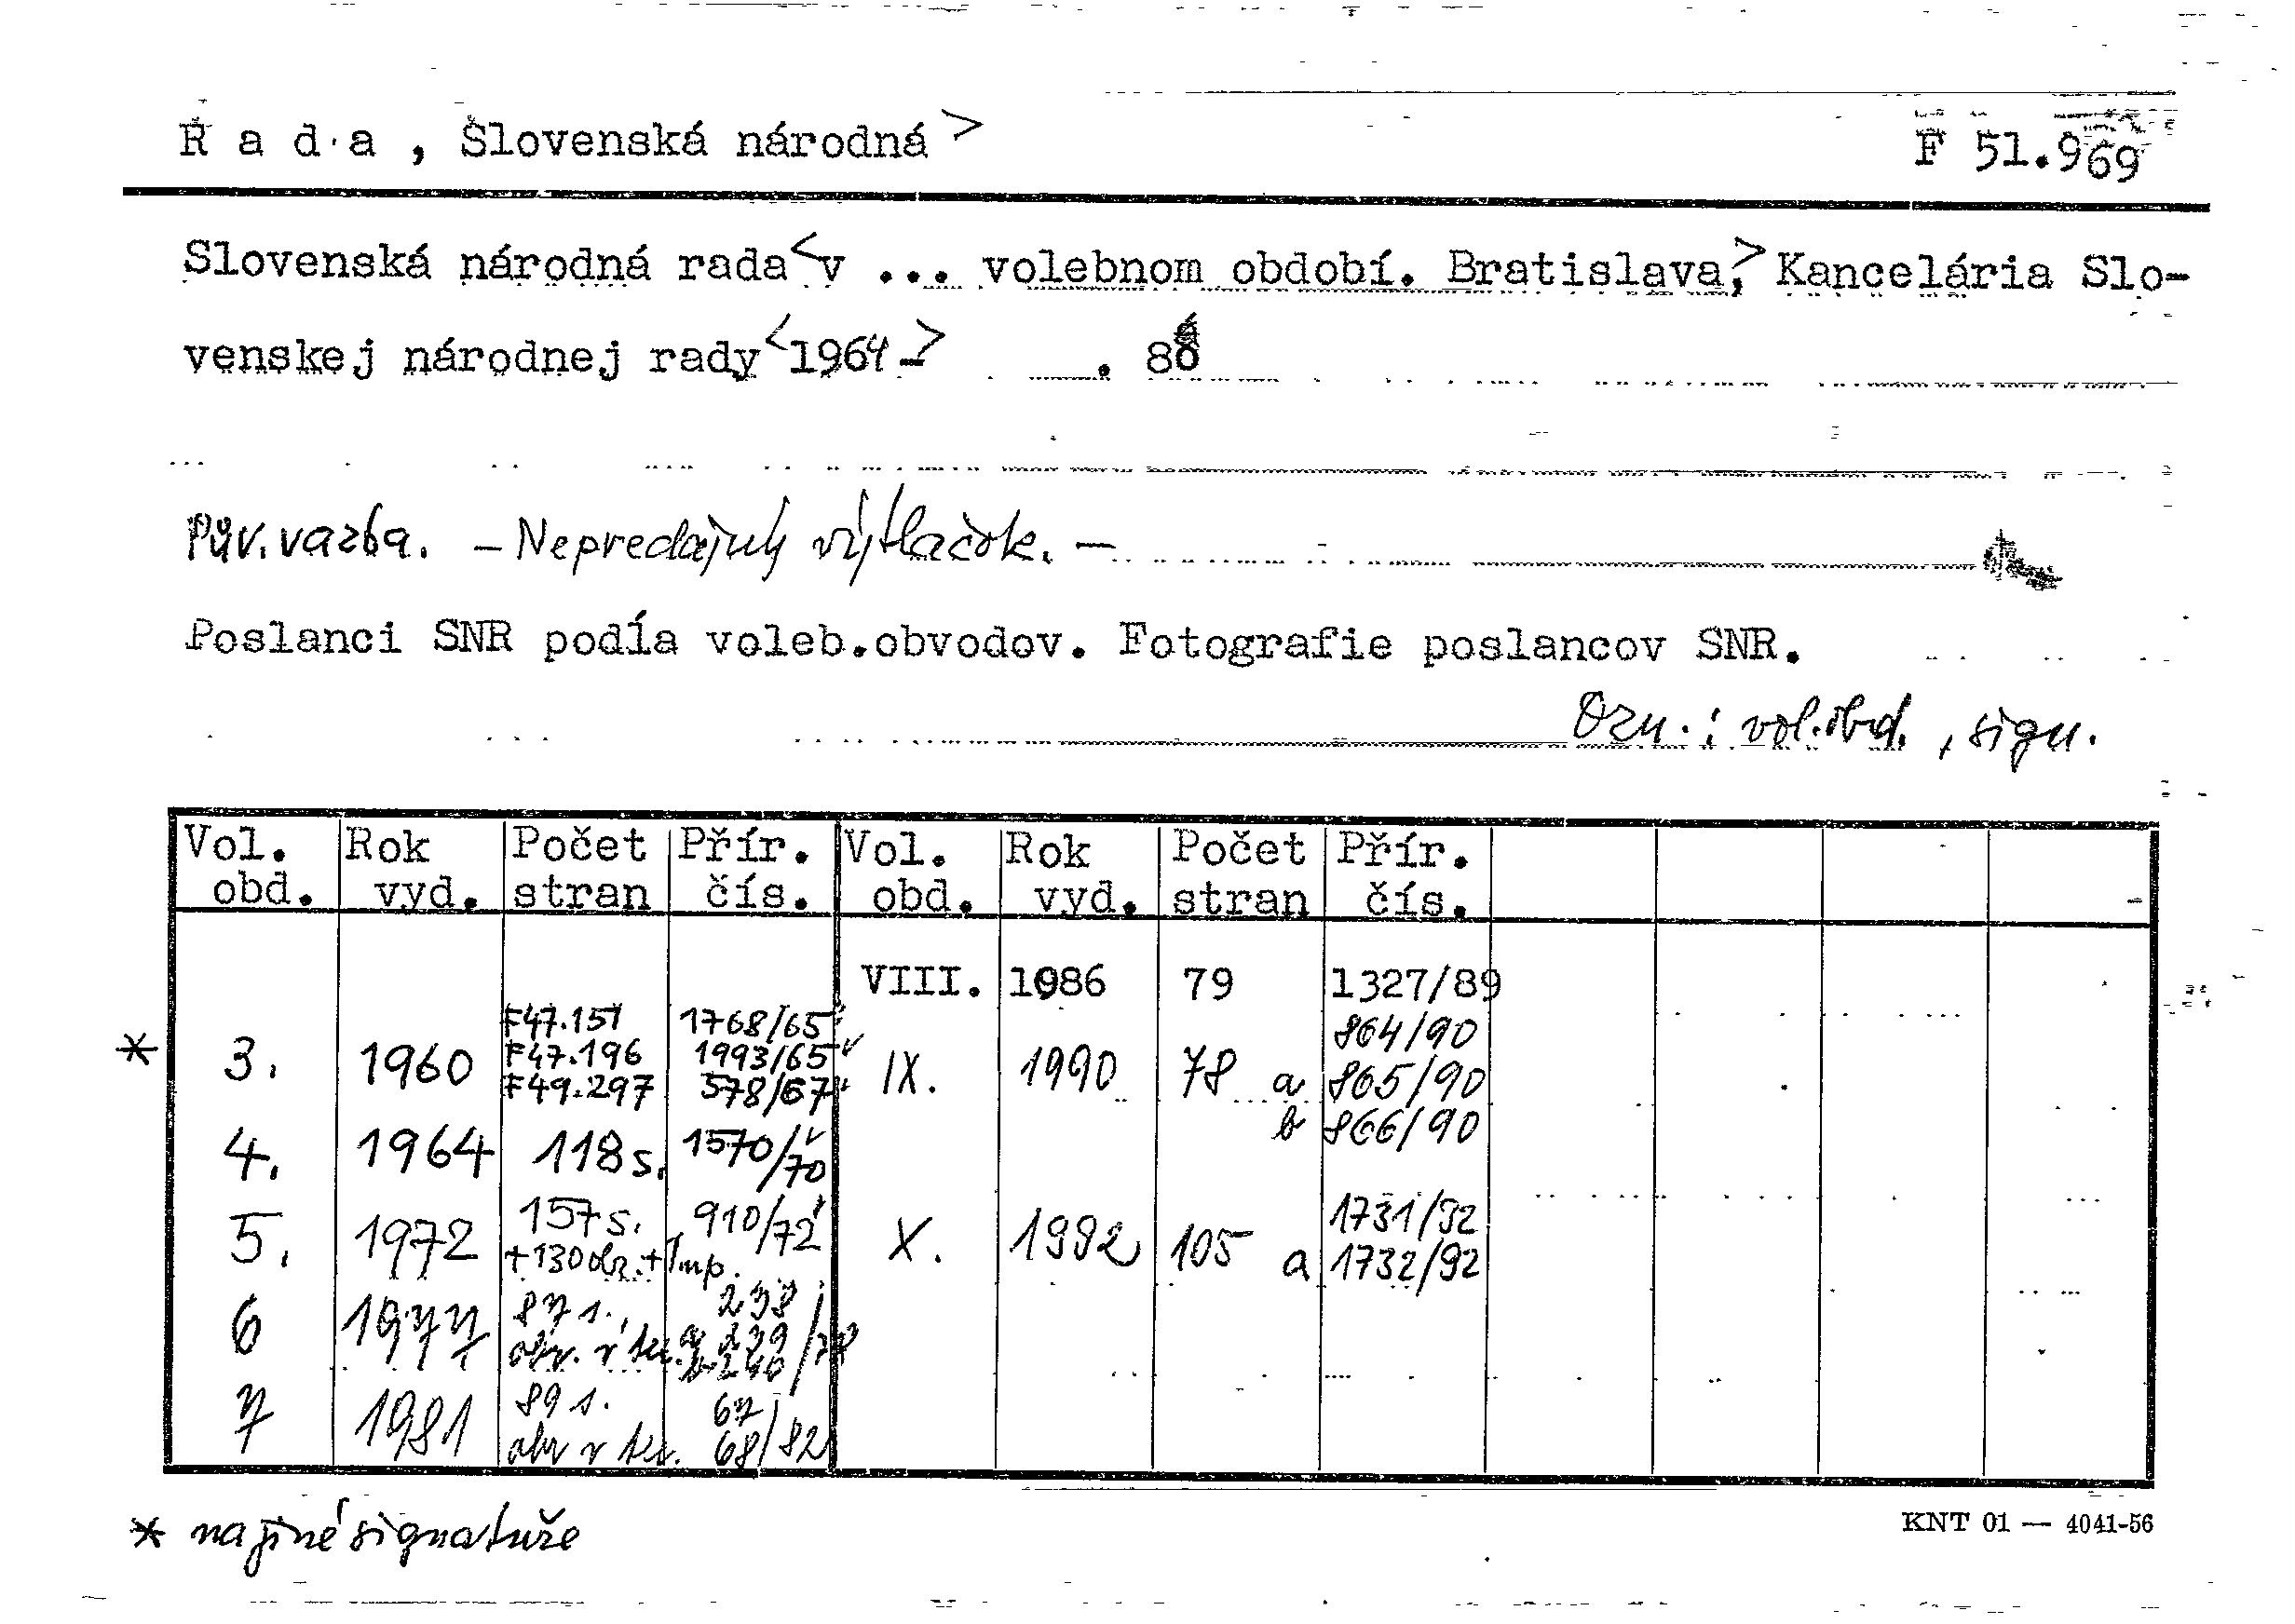 R a d a , Slovenská národná > F 51.969
Slovenská národná rada < v ... volebnom období. Bratislava, > Kancelária Slo-
venskej národnej rady < 1964 - > . 8°
Pův. vazba. - Nepredajný výtlačok. -
Poslanci SNR podĺa voleb.obvodov. Fotografie poslancov SNR.
Ozn.: vol.obd., sign.
Vol. obd. Rok vyd. Počet stran Přír. čís. Vol. obd. Rok vyd. Počet stran Přír. čís.
VIII. 1986 79 1327/89
* 3. 1960 F47.151 1768/65 F47.196 1993/65 F49.297 578/67 IX. 1990 78 864/90 a 865/90 b 866/90
4. 1964 118 s. 1570/70
5. 1972 157 s. + 130 obr. + 1 mp. 910/72 X. 1992 105 1731/92 a 1732/92
6 1977 87 s., obr. v tex. 238 a 239 b 240 /78
7 1981 89 s. obr v tex. 67 68/82
* na jiné signatuře
KNT 01 — 4041-56